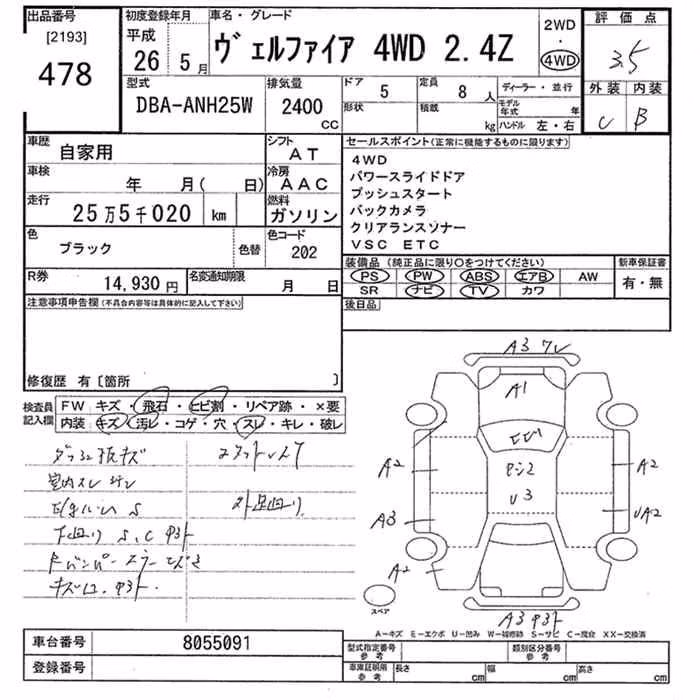 出品番号
[2193]
478
初度登録年月
平成
26 5月
車名・グレード
ヴェルファイア 4WD 2.4Z
2WD
・
4WD
評価点
3.5
外装 内装
C B
型式
DBA-ANH25W
排気量
2400
CC
ドア
5
形状
定員
8 人
積載
kg
ディーラー・並行
モデル年式 年
ハンドル 左・右
車歴
自家用
シフト
AT
車検
年 月( 日)
冷房
AAC
走行
25万5千020 km
燃料
ガソリン
色
ブラック
色替
色コード
202
R券
14,930 円
名変通知期限
月 日
セールスポイント(正常に機能するものに限ります)
4WD
パワースライドドア
プッシュスタート
バックカメラ
クリアランスソナー
VSC ETC
装備品(純正品に限り○をつけてください)
PS PW ABS エアB AW
SR ナビ TV カワ
新車保証書
有・無
後日品
注意事項申告欄(不具合内容等は具体的に記入して下さい)
修復歴 有〔箇所 〕
検査員
記入欄
FW キズ・飛石・ヒビ割・リペア跡・×要
内装 キズ・汚レ・コゲ・穴・スレ・キレ・破レ
室内スレ
下回り S、C
A3
A1
A2
A2
A3
UA2
U3
A2
A3
スペア
A−キズ E−エクボ U−凹み W−補修跡 S−サビ C−腐食 XX−交換済
車台番号
8055091
登録番号
型式指定番号
参考
類別区分番号
参考
車庫証明用
参考
長さ cm
幅 cm
高さ cm